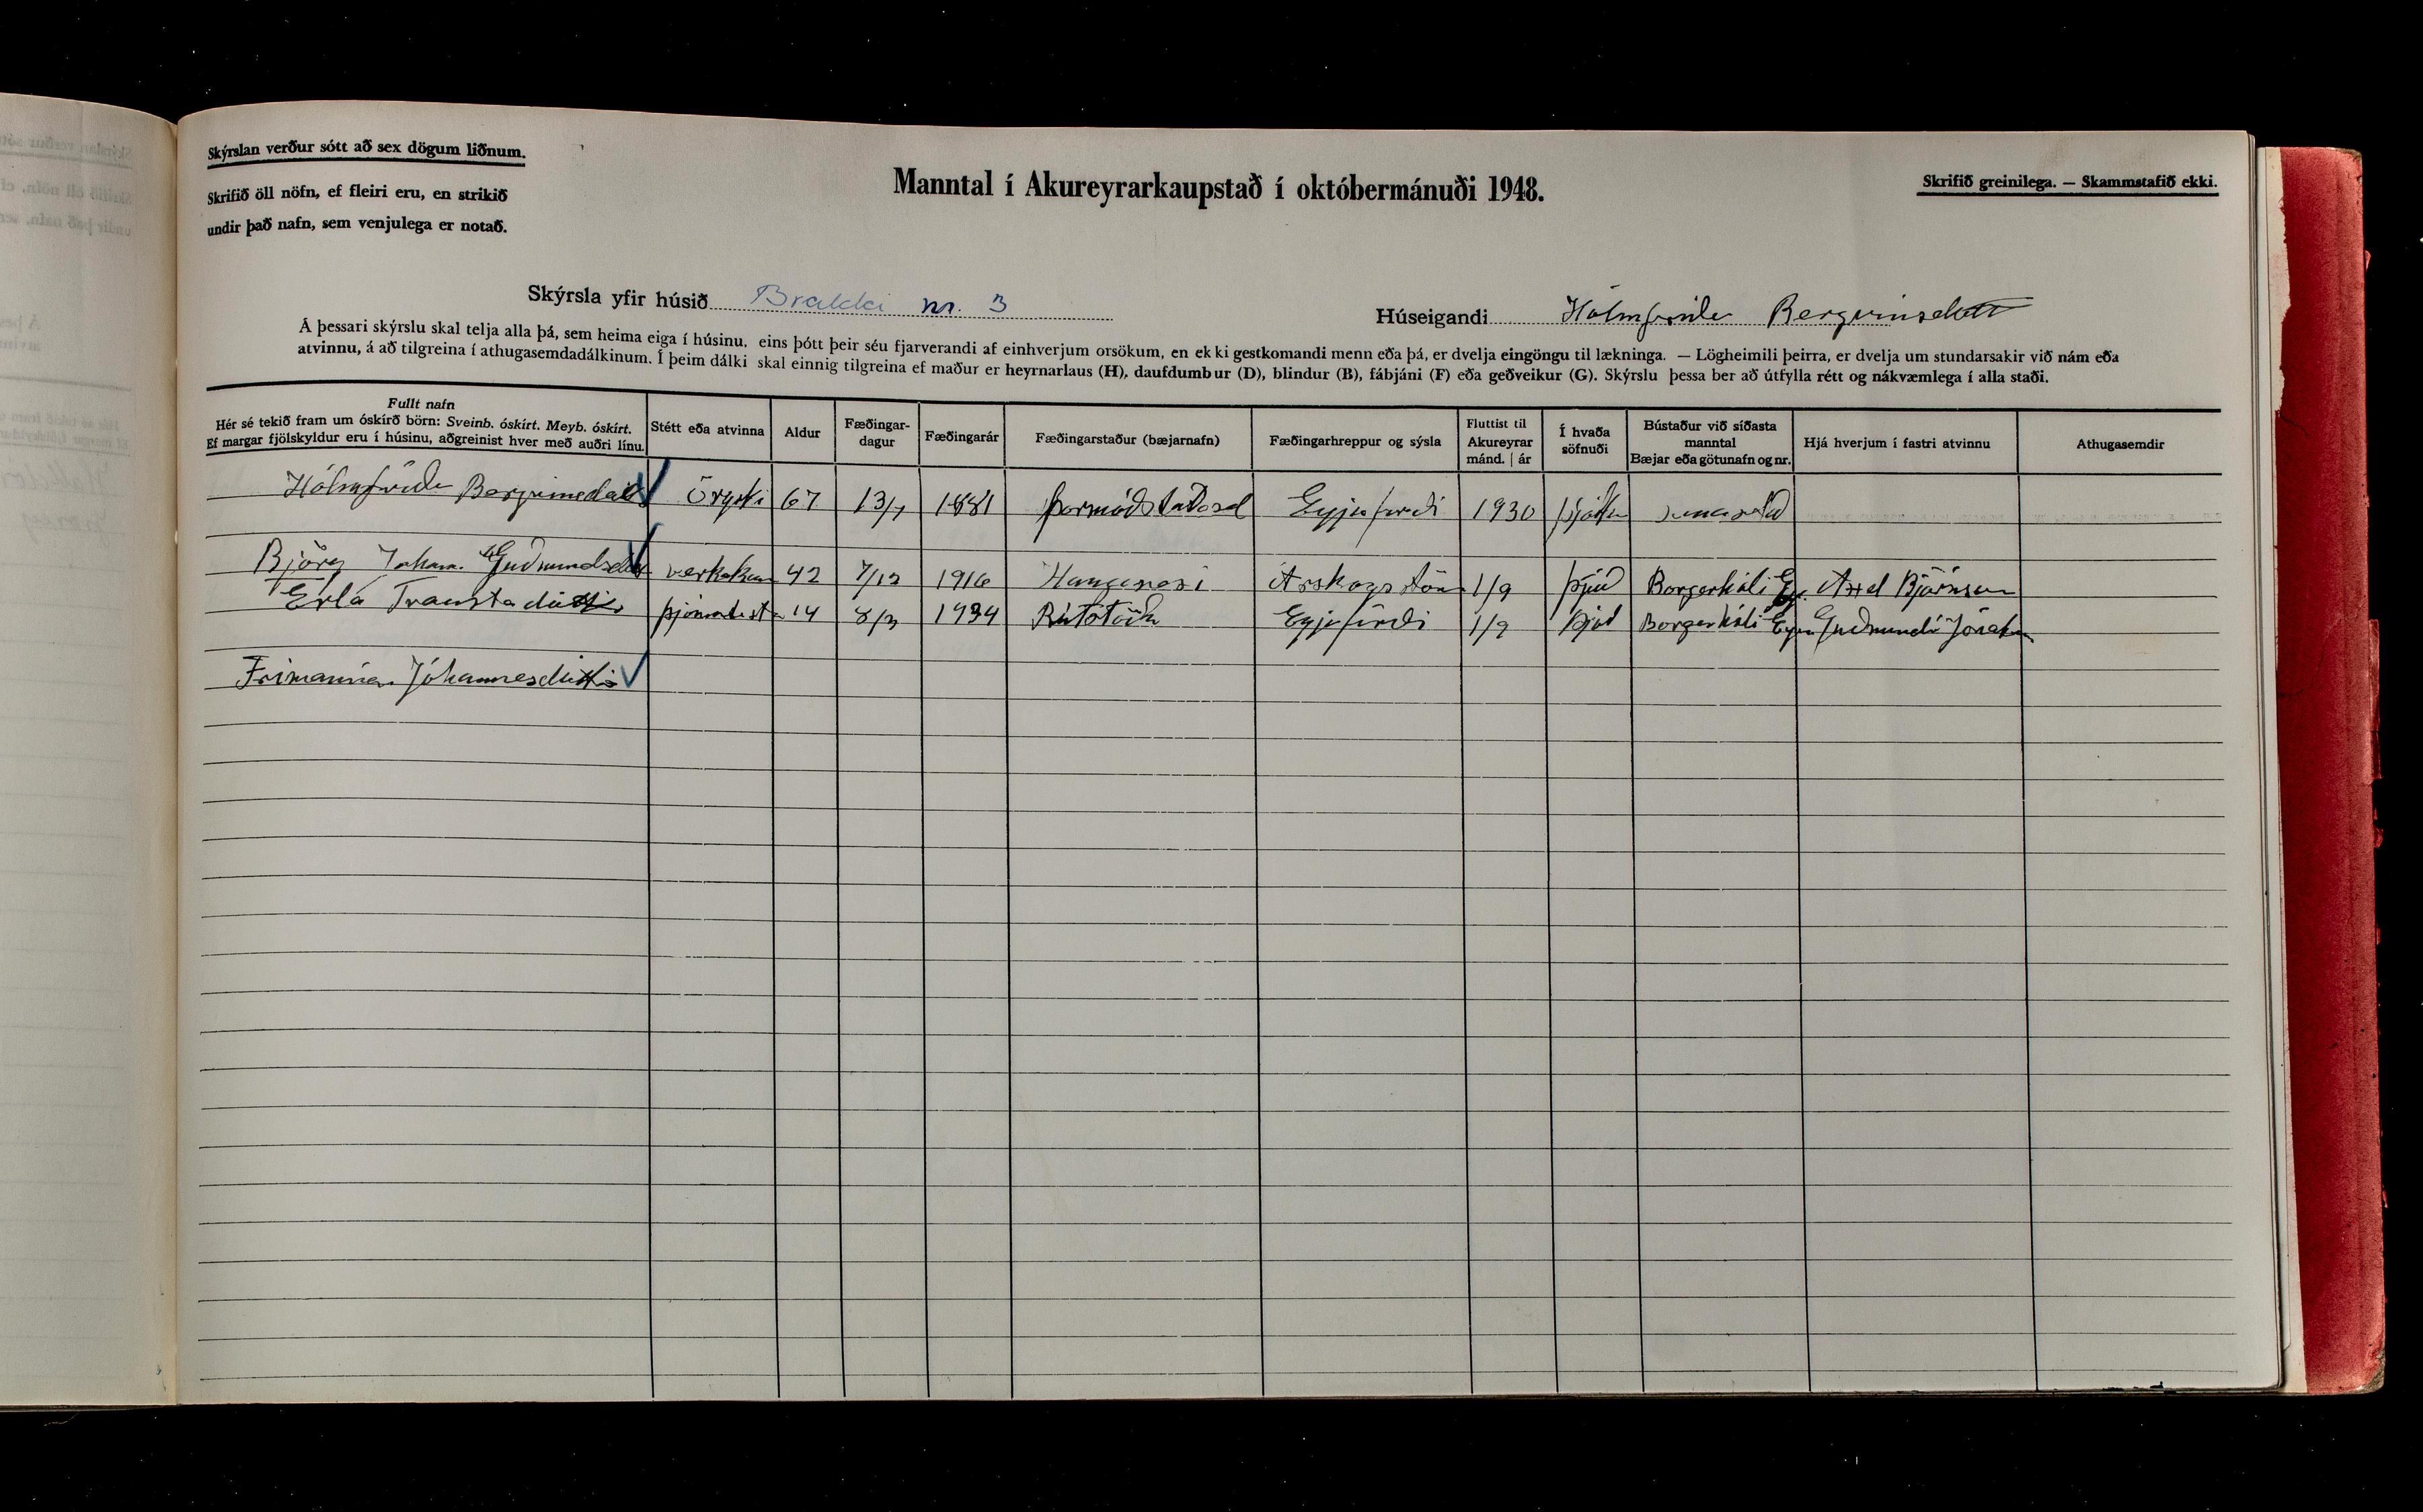 Skýrslan verður sótt að sex dögum liðnum.
Skrifið öll nöfn, ef fleiri eru, en strikið
undir það nafn, sem venjulega er notað.
Manntal í Akureyrarkaupstað í októbermánuði 1948.
Skrifið greinilega. — Skammstafið ekki.
Skýrsla yfir húsið Brakki nr. 3
Húseigandi Hólmfríður Bergvinsdótt
Á þessari skýrslu skal telja alla þá, sem heima eiga í húsinu, eins þótt þeir séu fjarverandi af einhverjum orsökum, en ekki gestkomandi menn eða þá, er dvelja eingöngu til lækninga. — Lögheimili þeirra, er dvelja um stundarsakir við nám eða
atvinnu, á að tilgreina í athugasemdadálkinum. Í þeim dálki skal einnig tilgreina ef maður er heyrnarlaus (H), daufdumbur (D), blindur (B), fábjáni (F) eða geðveikur (G). Skýrslu þessa ber að útfylla rétt og nákvæmlega í alla staði.
Fullt nafn
Hér sé tekið fram um óskírð börn: Sveinb. óskírt. Meyb. óskírt.
Ef margar fjölskyldur eru í húsinu, aðgreinist hver með auðri línu.
Stétt eða atvinna
Aldur
Fæðingar-
dagur
Fæðingarár
Fæðingarstaður (bæjarnafn)
Fæðingarhreppur og sýsla
Fluttist til
Akureyrar
mánd. | ár
Í hvaða
söfnuði
Bústaður við síðasta
manntal
Bæjar eða götunafn og nr.
Hjá hverjum í fastri atvinnu
Athugasemdir
Hólmfríður 67 1881 Þormóðstaðasel Eyjafirði 1930
Björg Guðmundsd 42 7/12 1916 Hauganesi Árskógströn 1/9 Þjóð Axel Björnsson
Erla Traustadóttir 14 8/3 1934 Eyjafirði 1/9 Þjóð Guðmundi
Frímannía Jóhannesdóttir